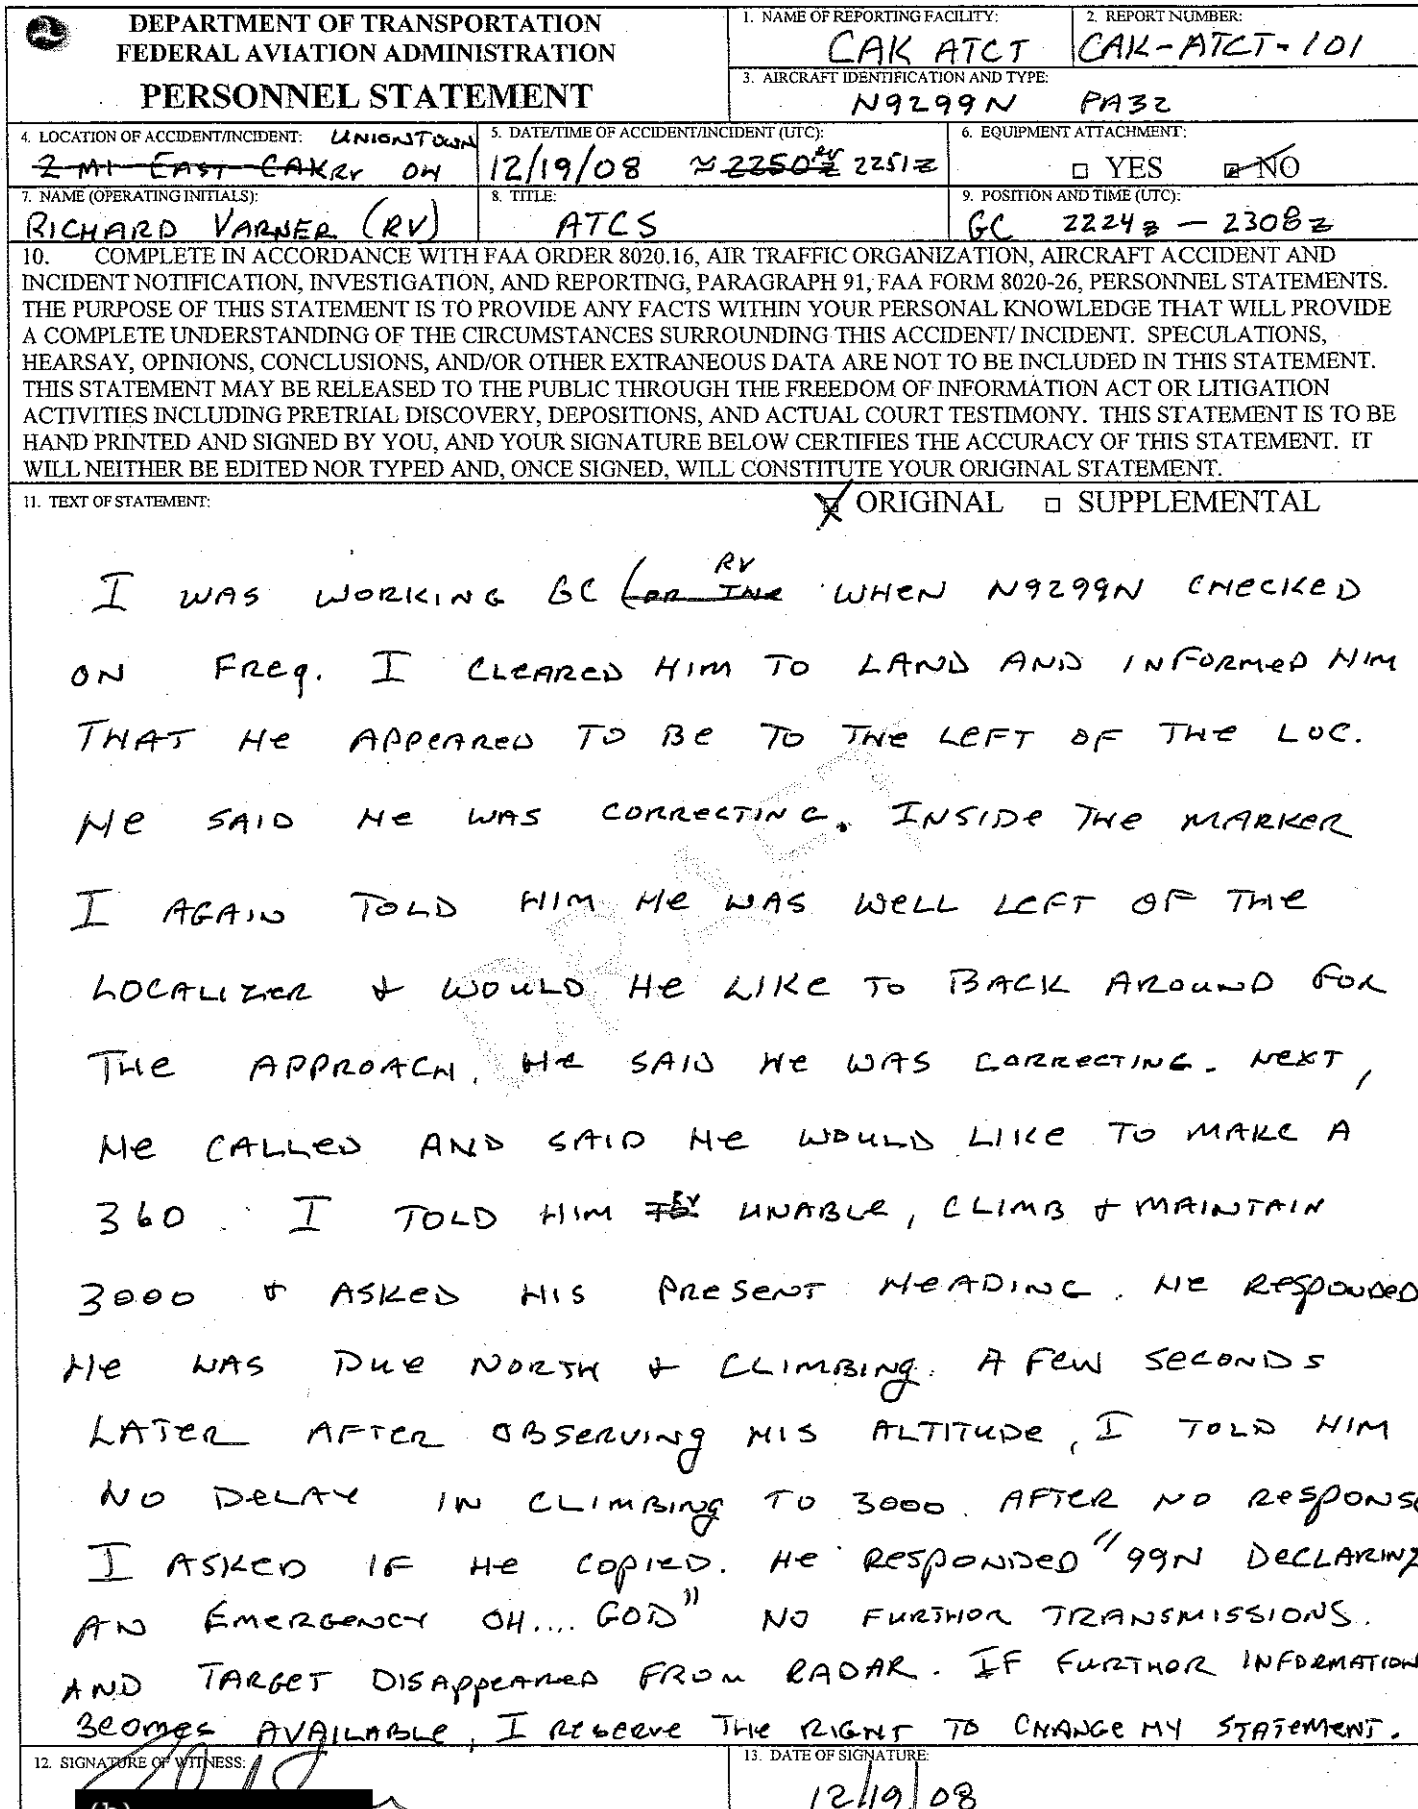 DEPARTMENT OF TRANSPORTATION
FEDERAL AVIATION ADMINISTRATION
PERSONNEL STATEMENT
1. NAME OF REPORTING FACILITY:
CAK ATCT
2. REPORT NUMBER:
CAK-ATCT-101
3. AIRCRAFT IDENTIFICATION AND TYPE:
N9299N PA32
4. LOCATION OF ACCIDENT/INCIDENT: UNIONTOWN
2 MI EAST CAK RV OH
5. DATE/TIME OF ACCIDENT/INCIDENT (UTC):
12/19/08 ≈ 2250z RV 2251z
6. EQUIPMENT ATTACHMENT:
□ YES ☑ NO
7. NAME (OPERATING INITIALS):
RICHARD VARNER (RV)
8. TITLE:
ATCS
9. POSITION AND TIME (UTC):
GC 2224z — 2308z
10. COMPLETE IN ACCORDANCE WITH FAA ORDER 8020.16, AIR TRAFFIC ORGANIZATION, AIRCRAFT ACCIDENT AND
INCIDENT NOTIFICATION, INVESTIGATION, AND REPORTING, PARAGRAPH 91, FAA FORM 8020-26, PERSONNEL STATEMENTS.
THE PURPOSE OF THIS STATEMENT IS TO PROVIDE ANY FACTS WITHIN YOUR PERSONAL KNOWLEDGE THAT WILL PROVIDE
A COMPLETE UNDERSTANDING OF THE CIRCUMSTANCES SURROUNDING THIS ACCIDENT/ INCIDENT. SPECULATIONS,
HEARSAY, OPINIONS, CONCLUSIONS, AND/OR OTHER EXTRANEOUS DATA ARE NOT TO BE INCLUDED IN THIS STATEMENT.
THIS STATEMENT MAY BE RELEASED TO THE PUBLIC THROUGH THE FREEDOM OF INFORMATION ACT OR LITIGATION
ACTIVITIES INCLUDING PRETRIAL DISCOVERY, DEPOSITIONS, AND ACTUAL COURT TESTIMONY. THIS STATEMENT IS TO BE
HAND PRINTED AND SIGNED BY YOU, AND YOUR SIGNATURE BELOW CERTIFIES THE ACCURACY OF THIS STATEMENT. IT
WILL NEITHER BE EDITED NOR TYPED AND, ONCE SIGNED, WILL CONSTITUTE YOUR ORIGINAL STATEMENT.
11. TEXT OF STATEMENT: ☒ ORIGINAL □ SUPPLEMENTAL
RV
I WAS WORKING GC WHEN N9299N CHECKED
ON FREQ. I CLEARED HIM TO LAND AND INFORMED HIM
THAT HE APPEARED TO BE TO THE LEFT OF THE LOC.
HE SAID HE WAS CORRECTING. INSIDE THE MARKER
I AGAIN TOLD HIM HE WAS WELL LEFT OF THE
LOCALIZER & WOULD HE LIKE TO BACK AROUND FOR
THE APPROACH. HE SAID HE WAS CORRECTING. NEXT,
HE CALLED AND SAID HE WOULD LIKE TO MAKE A
360. I TOLD HIM RV UNABLE, CLIMB & MAINTAIN
3000 & ASKED HIS PRESENT HEADING. HE RESPONDED
HE WAS DUE NORTH & CLIMBING. A FEW SECONDS
LATER AFTER OBSERVING HIS ALTITUDE, I TOLD HIM
NO DELAY IN CLIMBING TO 3000. AFTER NO RESPONSE
I ASKED IF HE COPIED. HE RESPONDED "99N DECLARING
AN EMERGENCY OH.... GOD" NO FURTHOR TRANSMISSIONS.
AND TARGET DISAPPEARED FROM RADAR. IF FURTHOR INFORMATION
BECOMES AVAILABLE, I RESERVE THE RIGHT TO CHANGE MY STATEMENT.
DRAFT
12. SIGNATURE OF WITNESS:
13. DATE OF SIGNATURE:
12/19/08